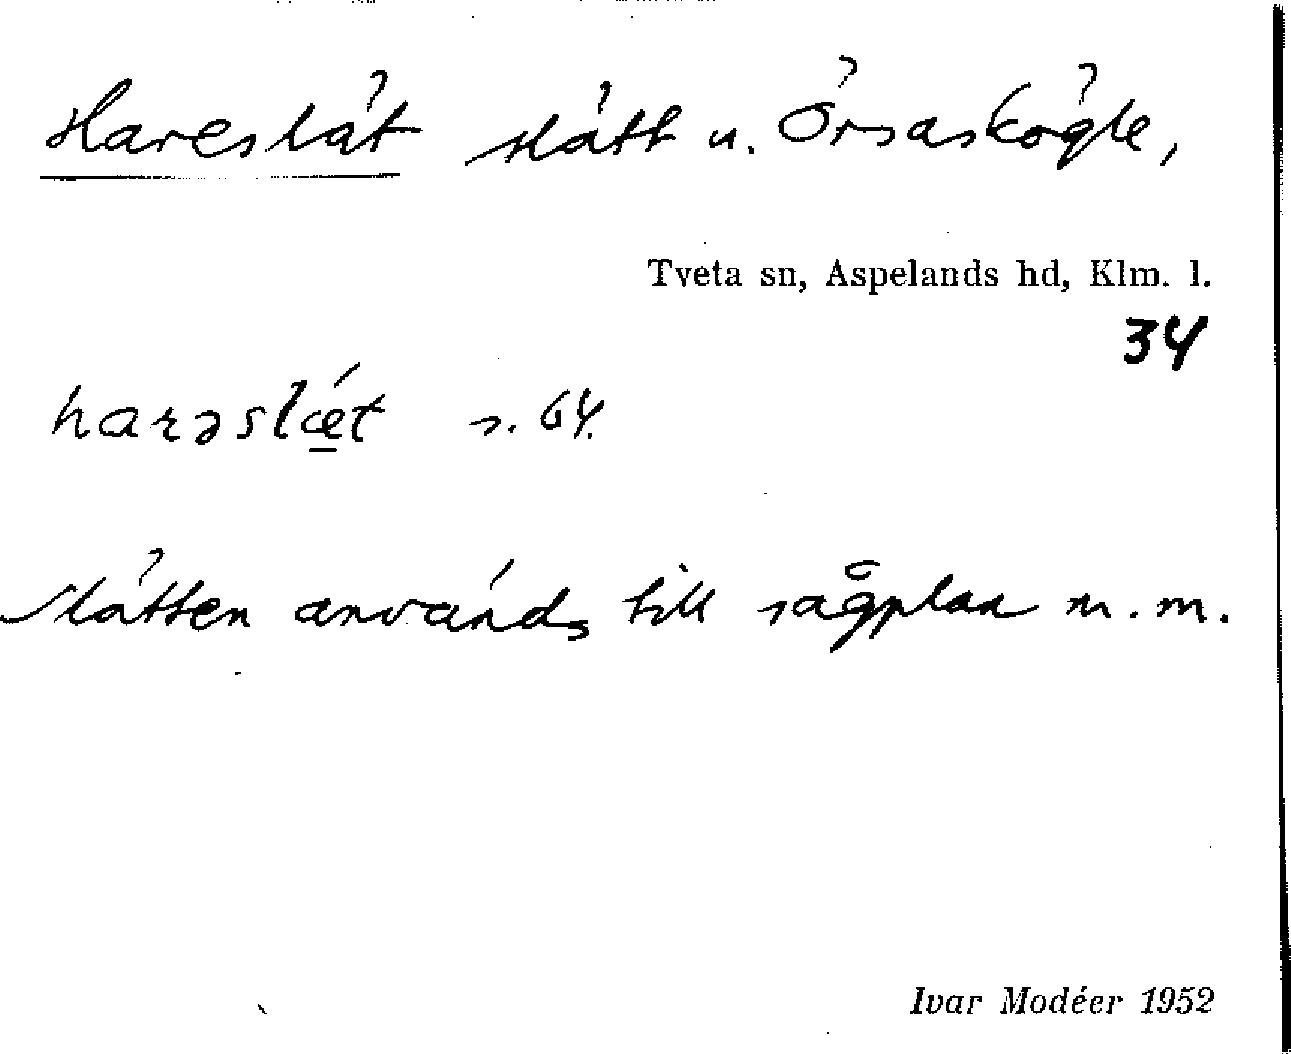 Hareslät slätt u. Örsaskögle,
Tveta sn, Aspelands hd, Klm. l.
34
harəslǽt s. 64.
slätten används till sågplan m.m.
Ivar Modéer 1952